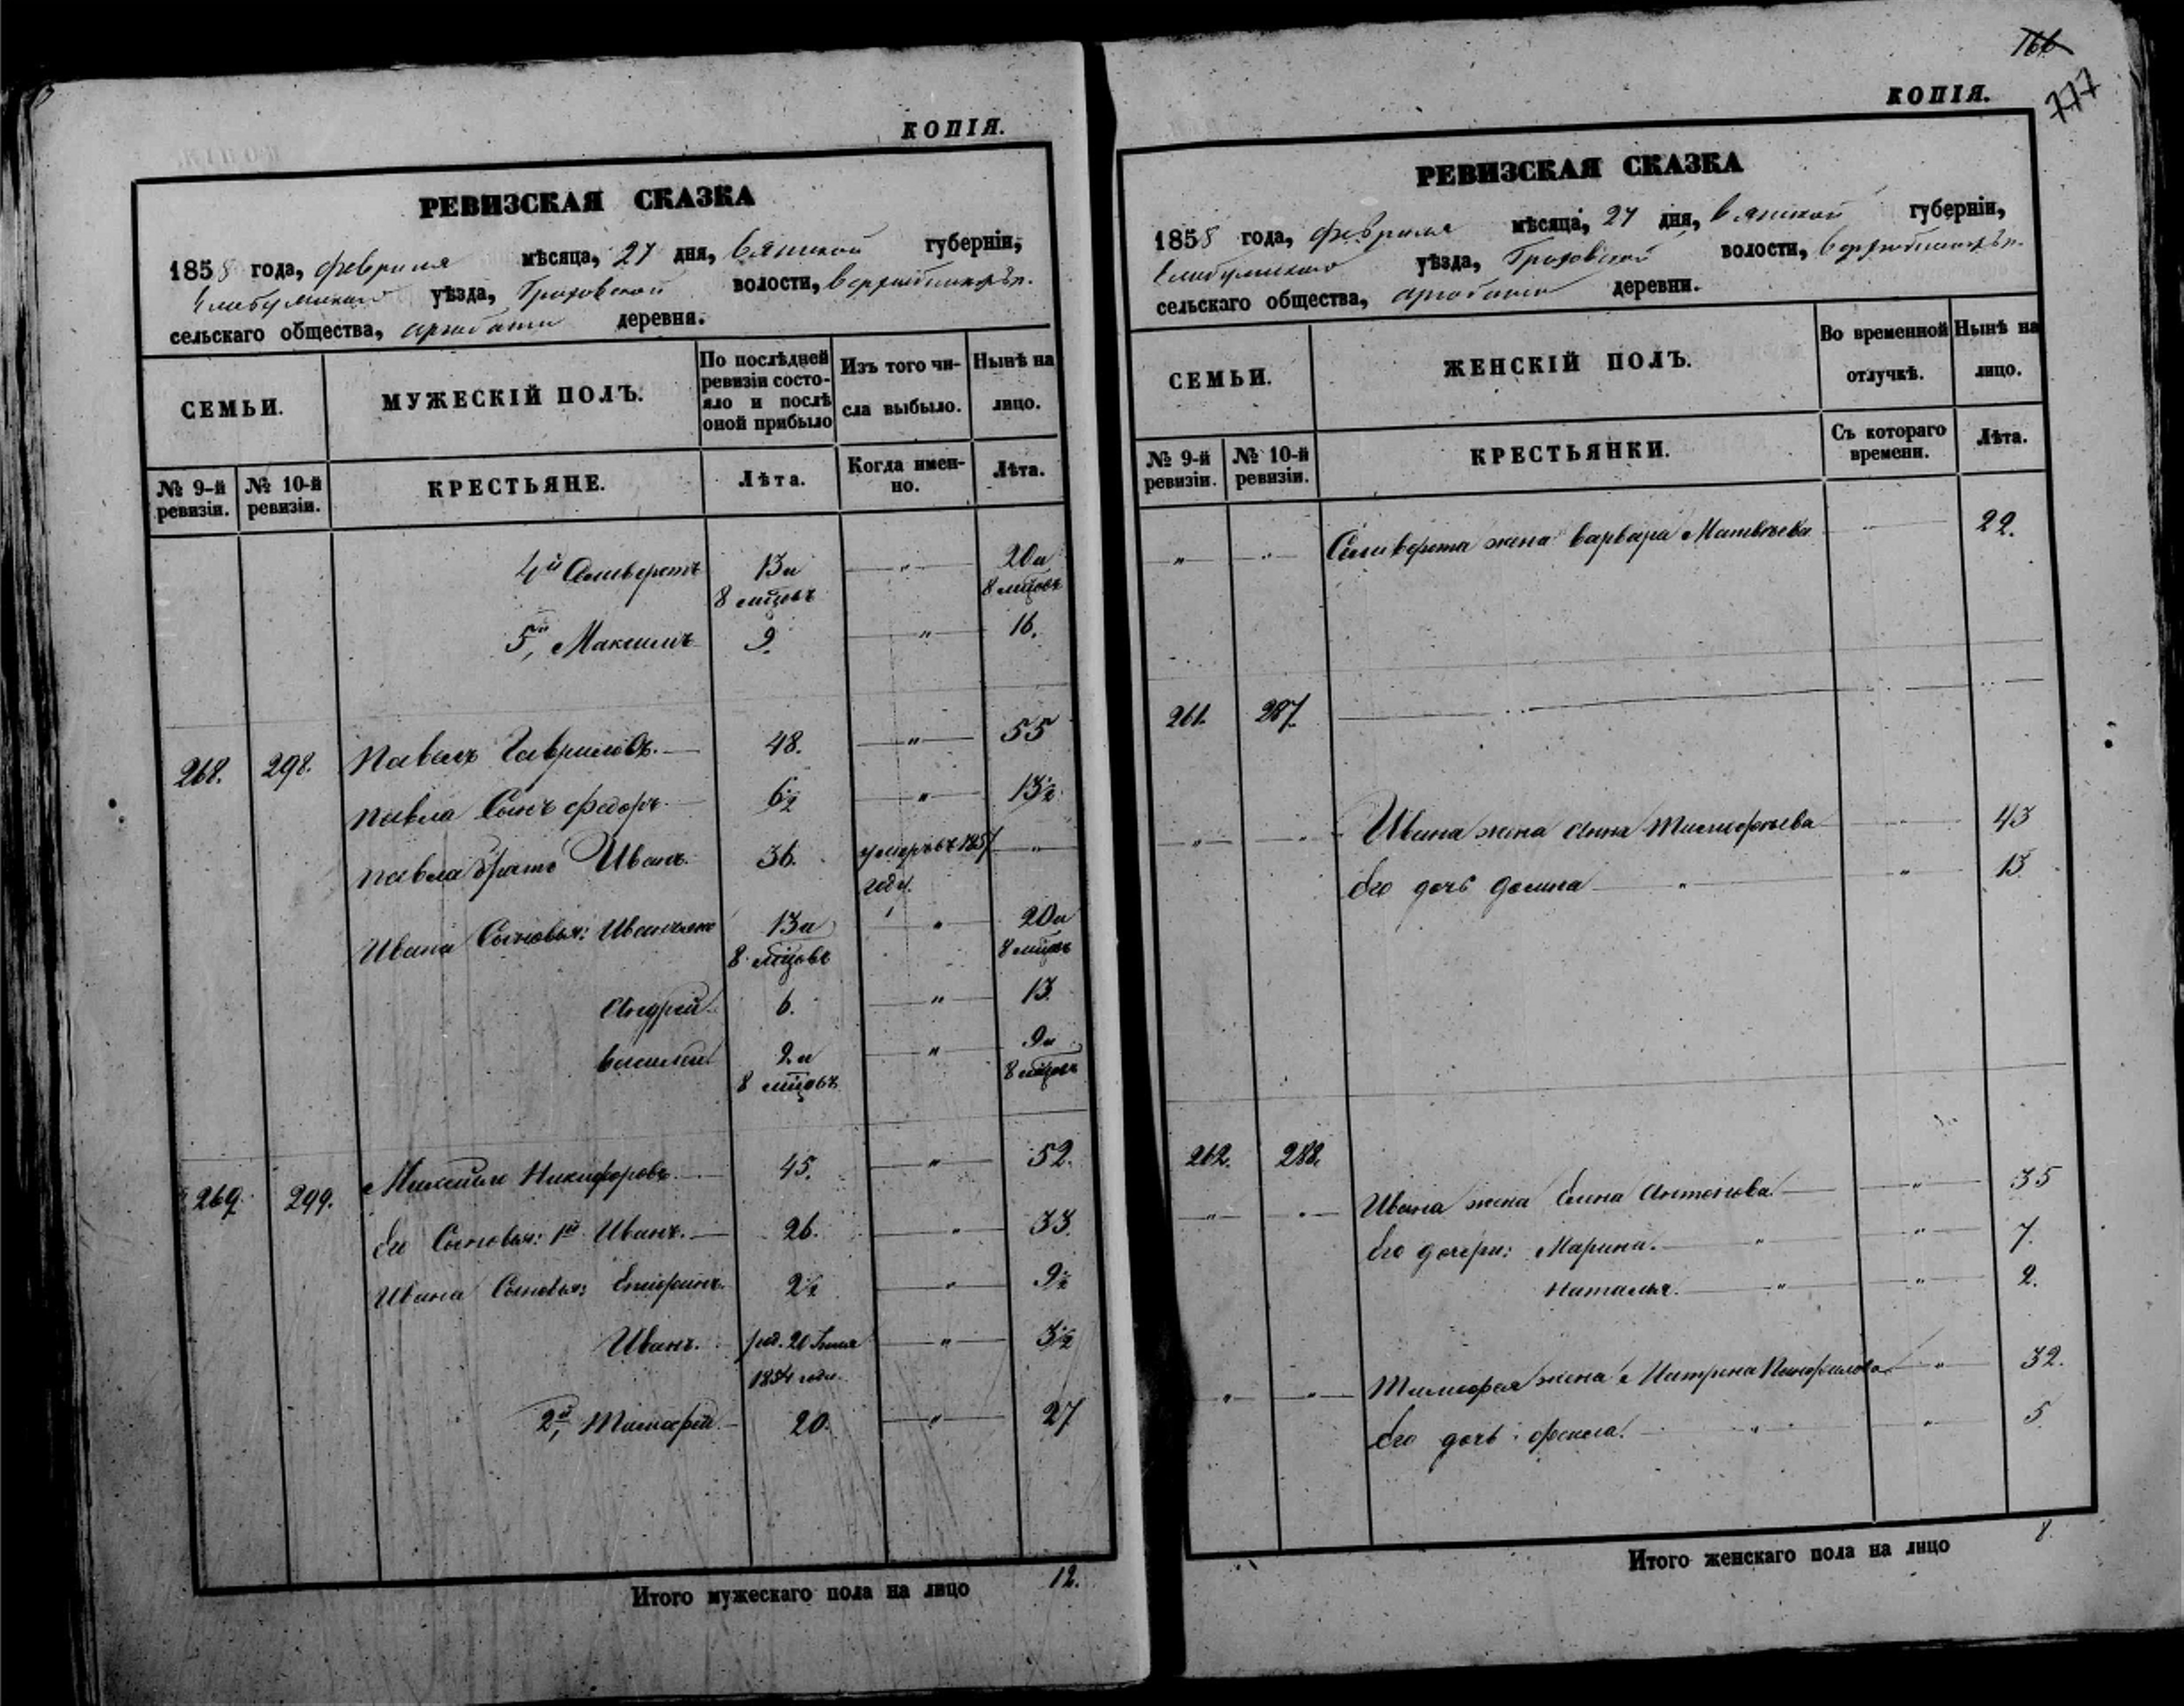 КОПІЯ.
РЕВИЗСКАЯ СКАЗКА
1858 года, февраля мѣсяца, 27 дня, Вятской губерніи,
Елабужскаго уѣзда, Граховской волости,
сельскаго общества, деревня.
СЕМЬИ.
МУЖЕСКІЙ ПОЛЪ.
По послѣдней
ревизіи состо-
яло и послѣ
оной прибыло
Изъ того чи-
сла выбыло.
Нынѣ на
лицо.
№ 9-й
ревизіи.
№ 10-й
ревизіи.
КРЕСТЬЯНЕ.
Лѣта.
Когда имен-
но.
Лѣта.
4й Селиверстъ 13 и 20 и
8 мѣцовъ 8 мѣцовъ
5й, Максимъ 9. " 16.
268. 298. Павелъ Гавриловъ. 48. " 55
Павла Сынъ Федоръ. 6½ " 13½
Павла братъ Иванъ. 36. умеръ въ 1857 "
году.
Ивана Сыновья: 13 и " 20 и
8 мѣцовъ 8 мѣцовъ
Андрей 6. " 13.
Василей 2 и " 9 и
8 мѣцовъ 8 мѣцовъ
269. 299. Михайло Никифоровъ. 45. " 52.
Его Сыновья: 1й Иванъ. 26. " 33.
Ивана Сыновья: 2½ " 9½
Иванъ. род. 20 " 3½
1854 года.
2й, Тимофей 20. " 27
Итого мужескаго пола на лицо 12.
166
777
КОПІЯ.
РЕВИЗСКАЯ СКАЗКА
1858 года, февраля мѣсяца, 27 дня, Вятской губерніи,
Елабужскаго уѣзда, Граховской волости,
сельскаго общества, деревни.
СЕМЬИ.
ЖЕНСКІЙ ПОЛЪ.
Во временной
отлучкѣ.
Нынѣ на
лицо.
№ 9-й
ревизіи.
№ 10-й
ревизіи.
КРЕСТЬЯНКИ.
Съ котораго
времени.
Лѣта.
" " Селиверста жена Варвара Матвѣева 22.
261. 287.
" " Ивана жена Анна Тимофеева 43
Его дочь " " 13
262. 288.
" " Ивана жена Елена Антонова " 35
Его дочери: Марина. " " 7.
Наталья. " " 2.
" " Тимофея жена Матрена Панфилова " 32.
Его дочь: Фекла. " " 5
Итого женскаго пола на лицо 8.